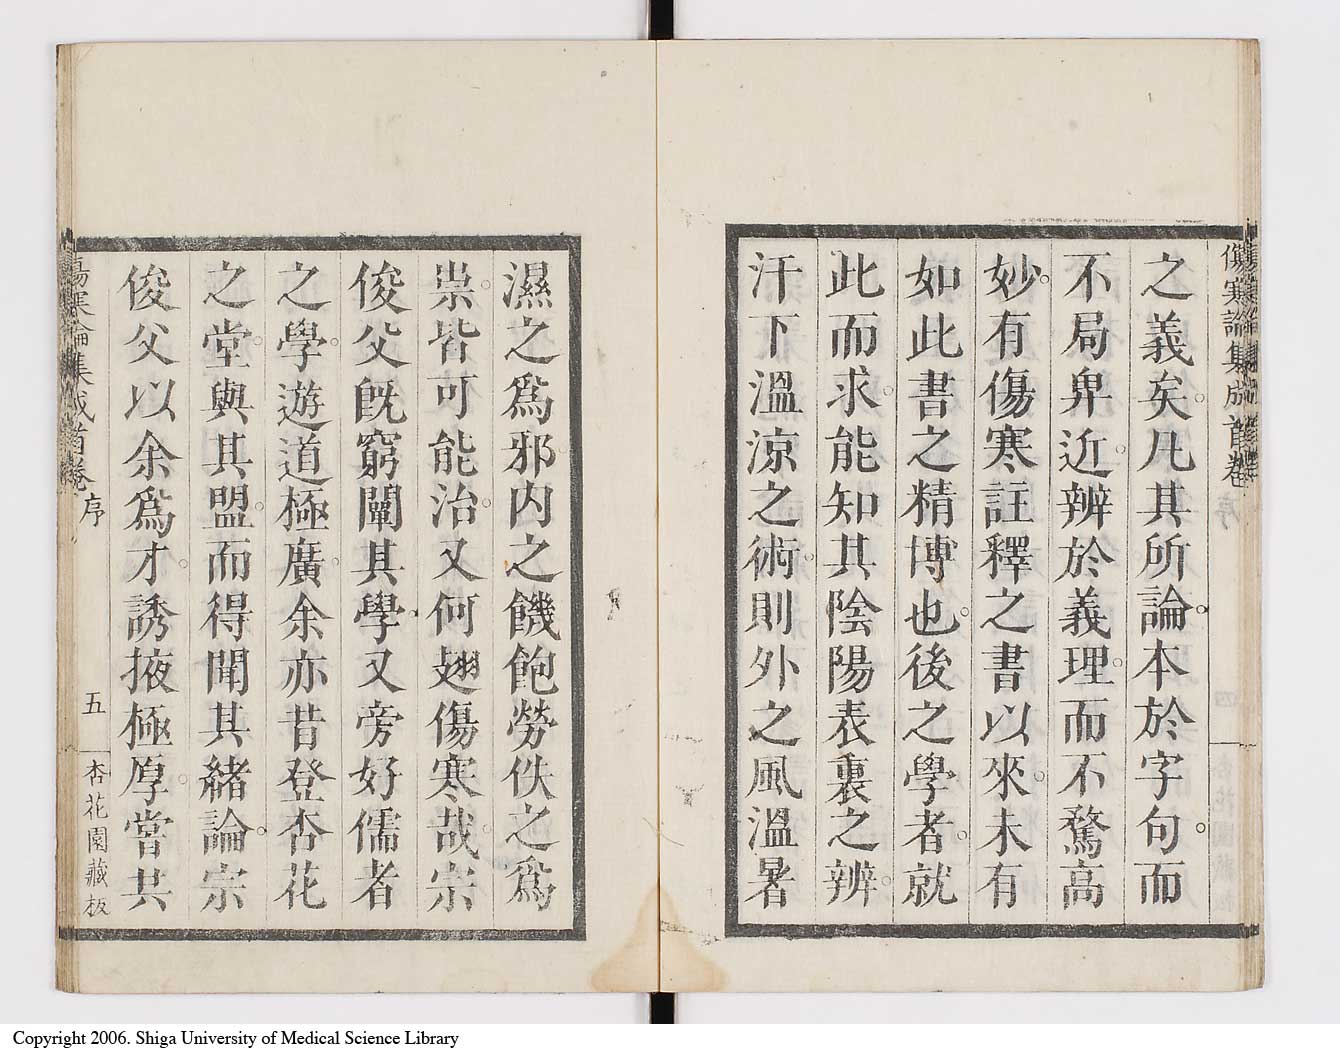 傷寒論集成首卷
之義矣。凡其所論本於字句。而
不局卑近。辨於義理。而不騖高
妙。有傷寒註釋之書以來。未有
如此書之精博也。後之學者。就
此而求。能知其陰陽表裏之辨。
汗下溫涼之術。則外之風溫暑
濕之爲邪。内之饑飽勞佚之爲
祟。皆可能治。又何翅傷寒哉。宗
俊父既窮闡其學。又旁好儒者
之學。遊道極廣。余亦昔登杏花
之堂。與其盟。而得聞其緒論。宗
俊父以余爲才。誘掖極厚。嘗共
傷寒論集成首卷
序
五
杏花園藏板
Copyright 2006. Shiga University of Medical Science Library